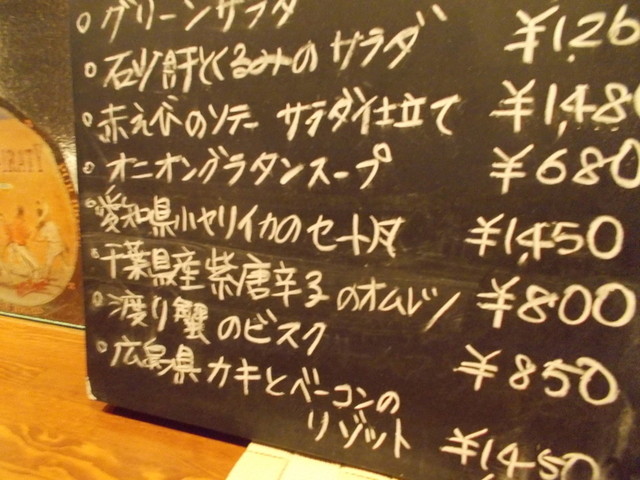 ○グリーンサラダ ¥1,26
○石少肝とくるみの サラダ
○赤えびのソテー サラダ仕立て ¥1,480
○オニオングラタンスープ ¥680
○愛知県小ヤリイカのセート风 ¥1,450
○千葉県産紫唐辛子のオムレツ ¥800
○渡り蟹のビスク ¥850
○広島県カキとベーコンの
リゾット ¥1450